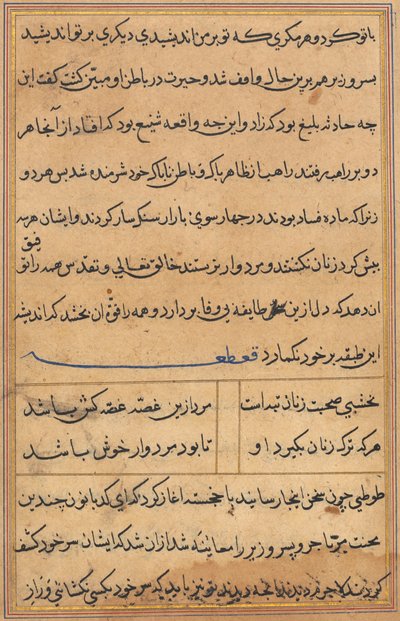 با تو کرد و هر مکری که تو بر من اندیشیدی دیگری بر تو اندیشید
پسر وزیر هم برین حال واقف شد و حیرت در باطن او مبین گشت گفت این
چه حادثه بلیغ بود که زاد و این چه واقعه شنیع بود که افتاد از آنجا هر
دو بر راهب رفتند راهب از ظاهر پاک و باطن ناپاک خود شرمنده شد پس هر دو
زنرا که ماده فساد بودند در چهار سوی بازار سنکسار کردند و ایشان هر سه
پیش کرد زنان نکشتند و مردوار بزیستند خالق تعالی و تقدس همه را توفیق
آن دهد که دل ازین طایفه بی وفا بردارد و همه را قوة آن بخشد که اندیشه
این طبقه بر خود نکمارد قطعه
نخشبی صحبت زنان تبه است مرد ازین غصه غصه کش باشد
هر که ترک زنان بگیرد او تا بود مردوار خوش باشد
طوطی چون سخن اینجا رسانید با خجسته آغاز کرد که ای کدبانو چندین
محنت مر تاجر و پسر وزیر را معاینه شد از آن شد که ایشان سر خود کشف
کردند ترا نیز باید که سر خود بکسی نکشائی و راز